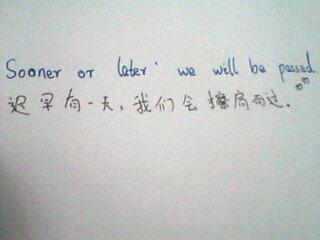 Sooner or later we will be passed.
迟早有一天,我们会擦肩而过.